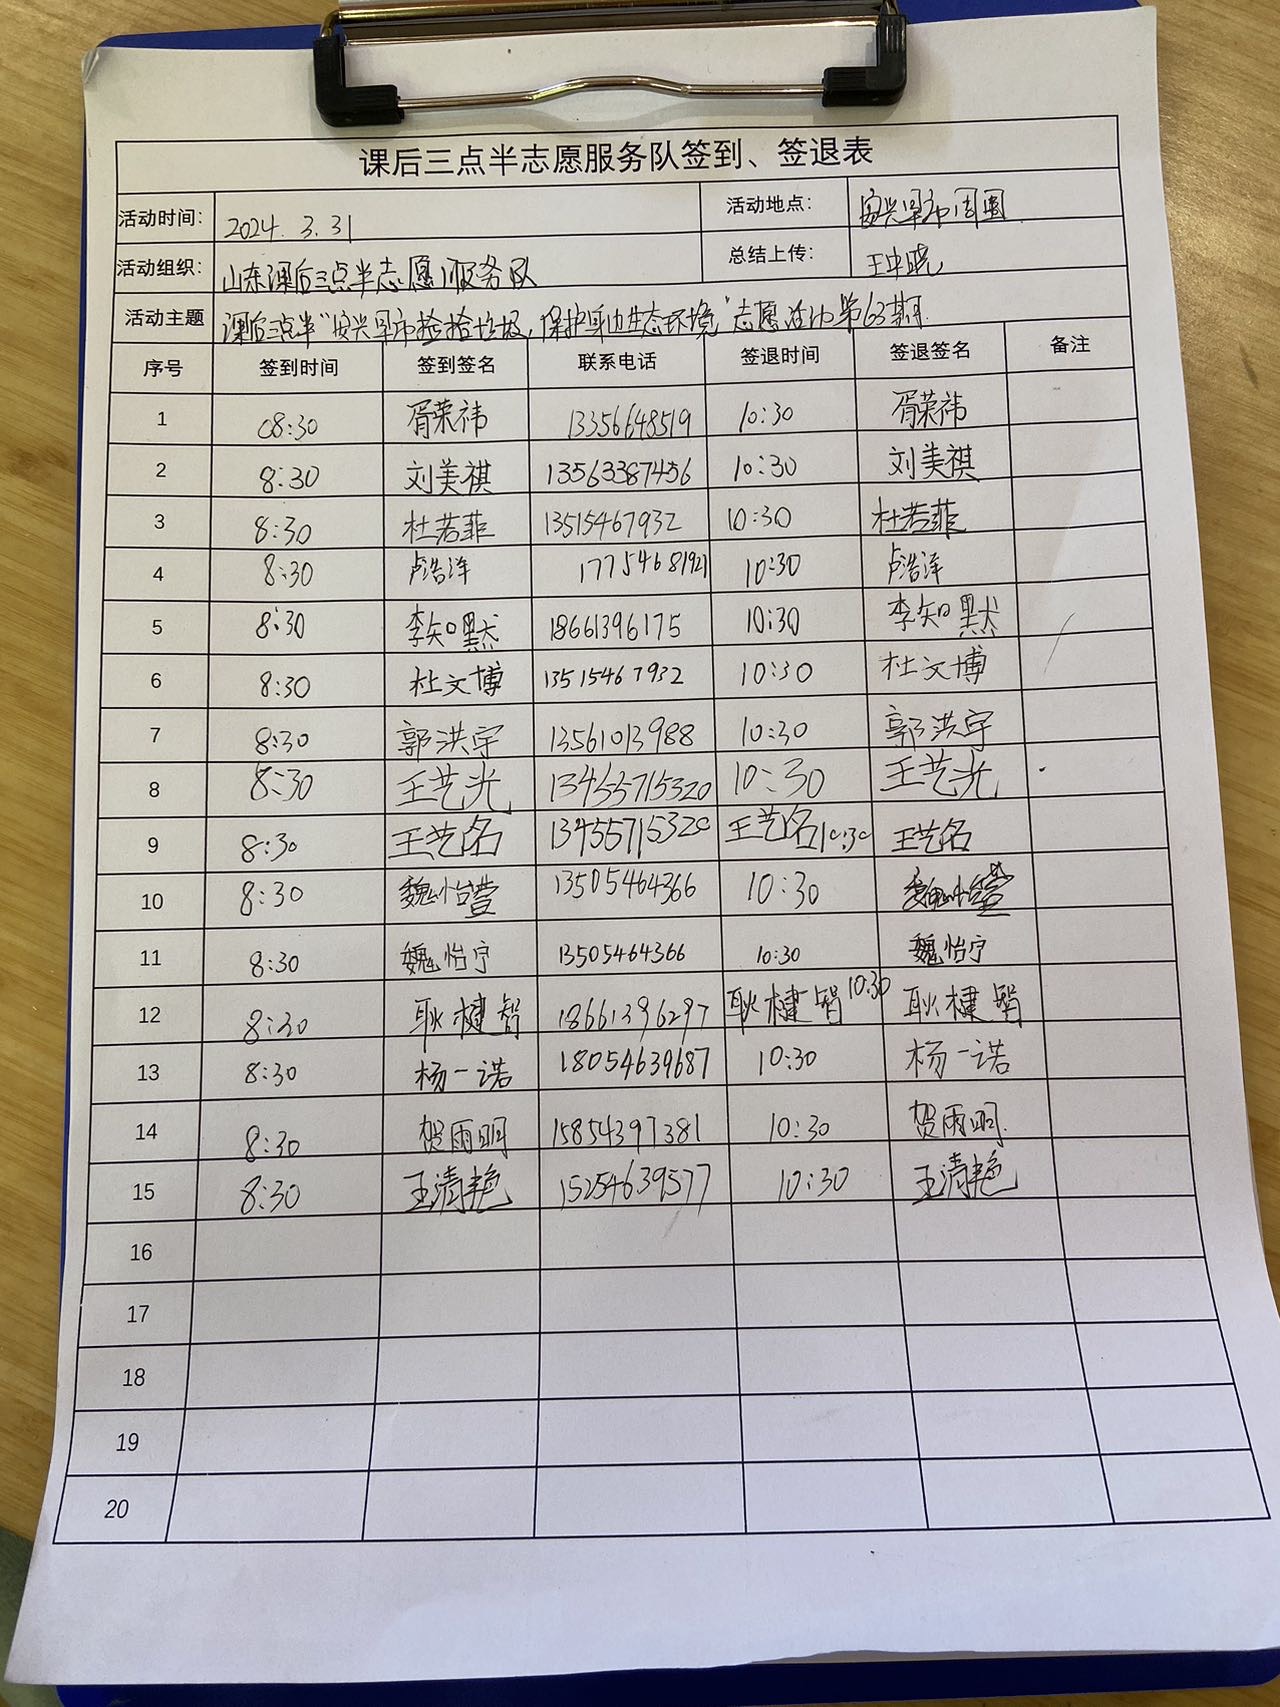 课后三点半志愿服务队签到、签退表
活动时间： 2024. 3. 31 活动地点： 安兴早市周围
活动组织： 山东课后三点半志愿服务队 总结上传： 王中晓
活动主题 课后三点半“安兴早市捡拾垃圾，保护身边生态环境”志愿活动第63期
序号 签到时间 签到签名 联系电话 签退时间 签退签名 备注
1 08:30 胥荣祎 13356648519 10:30 胥荣祎
2 8:30 刘美祺 13563387456 10:30 刘美祺
3 8:30 杜若菲 13515467932 10:30 杜若菲
4 8:30 卢浩泽 17754681921 10:30 卢浩泽
5 8:30 李知默 18661396175 10:30 李知默
6 8:30 杜文博 13515467932 10:30 杜文博
7 8:30 郭洪宇 13561013988 10:30 郭洪宇
8 8:30 王艺光 13455715320 10:30 王艺光
9 8:30 王艺名 13455715320 王艺名10:30 王艺名
10 8:30 魏怡萱 13505464366 10:30 魏怡萱
11 8:30 魏怡宁 13505464366 10:30 魏怡宁
12 8:30 耿楗智 18661396297 耿楗智10:30 耿楗智
13 8:30 杨一诺 18054639687 10:30 杨一诺
14 8:30 贺雨明 15854397381 10:30 贺雨明
15 8:30 王清艳 15254639577 10:30 王清艳
16
17
18
19
20